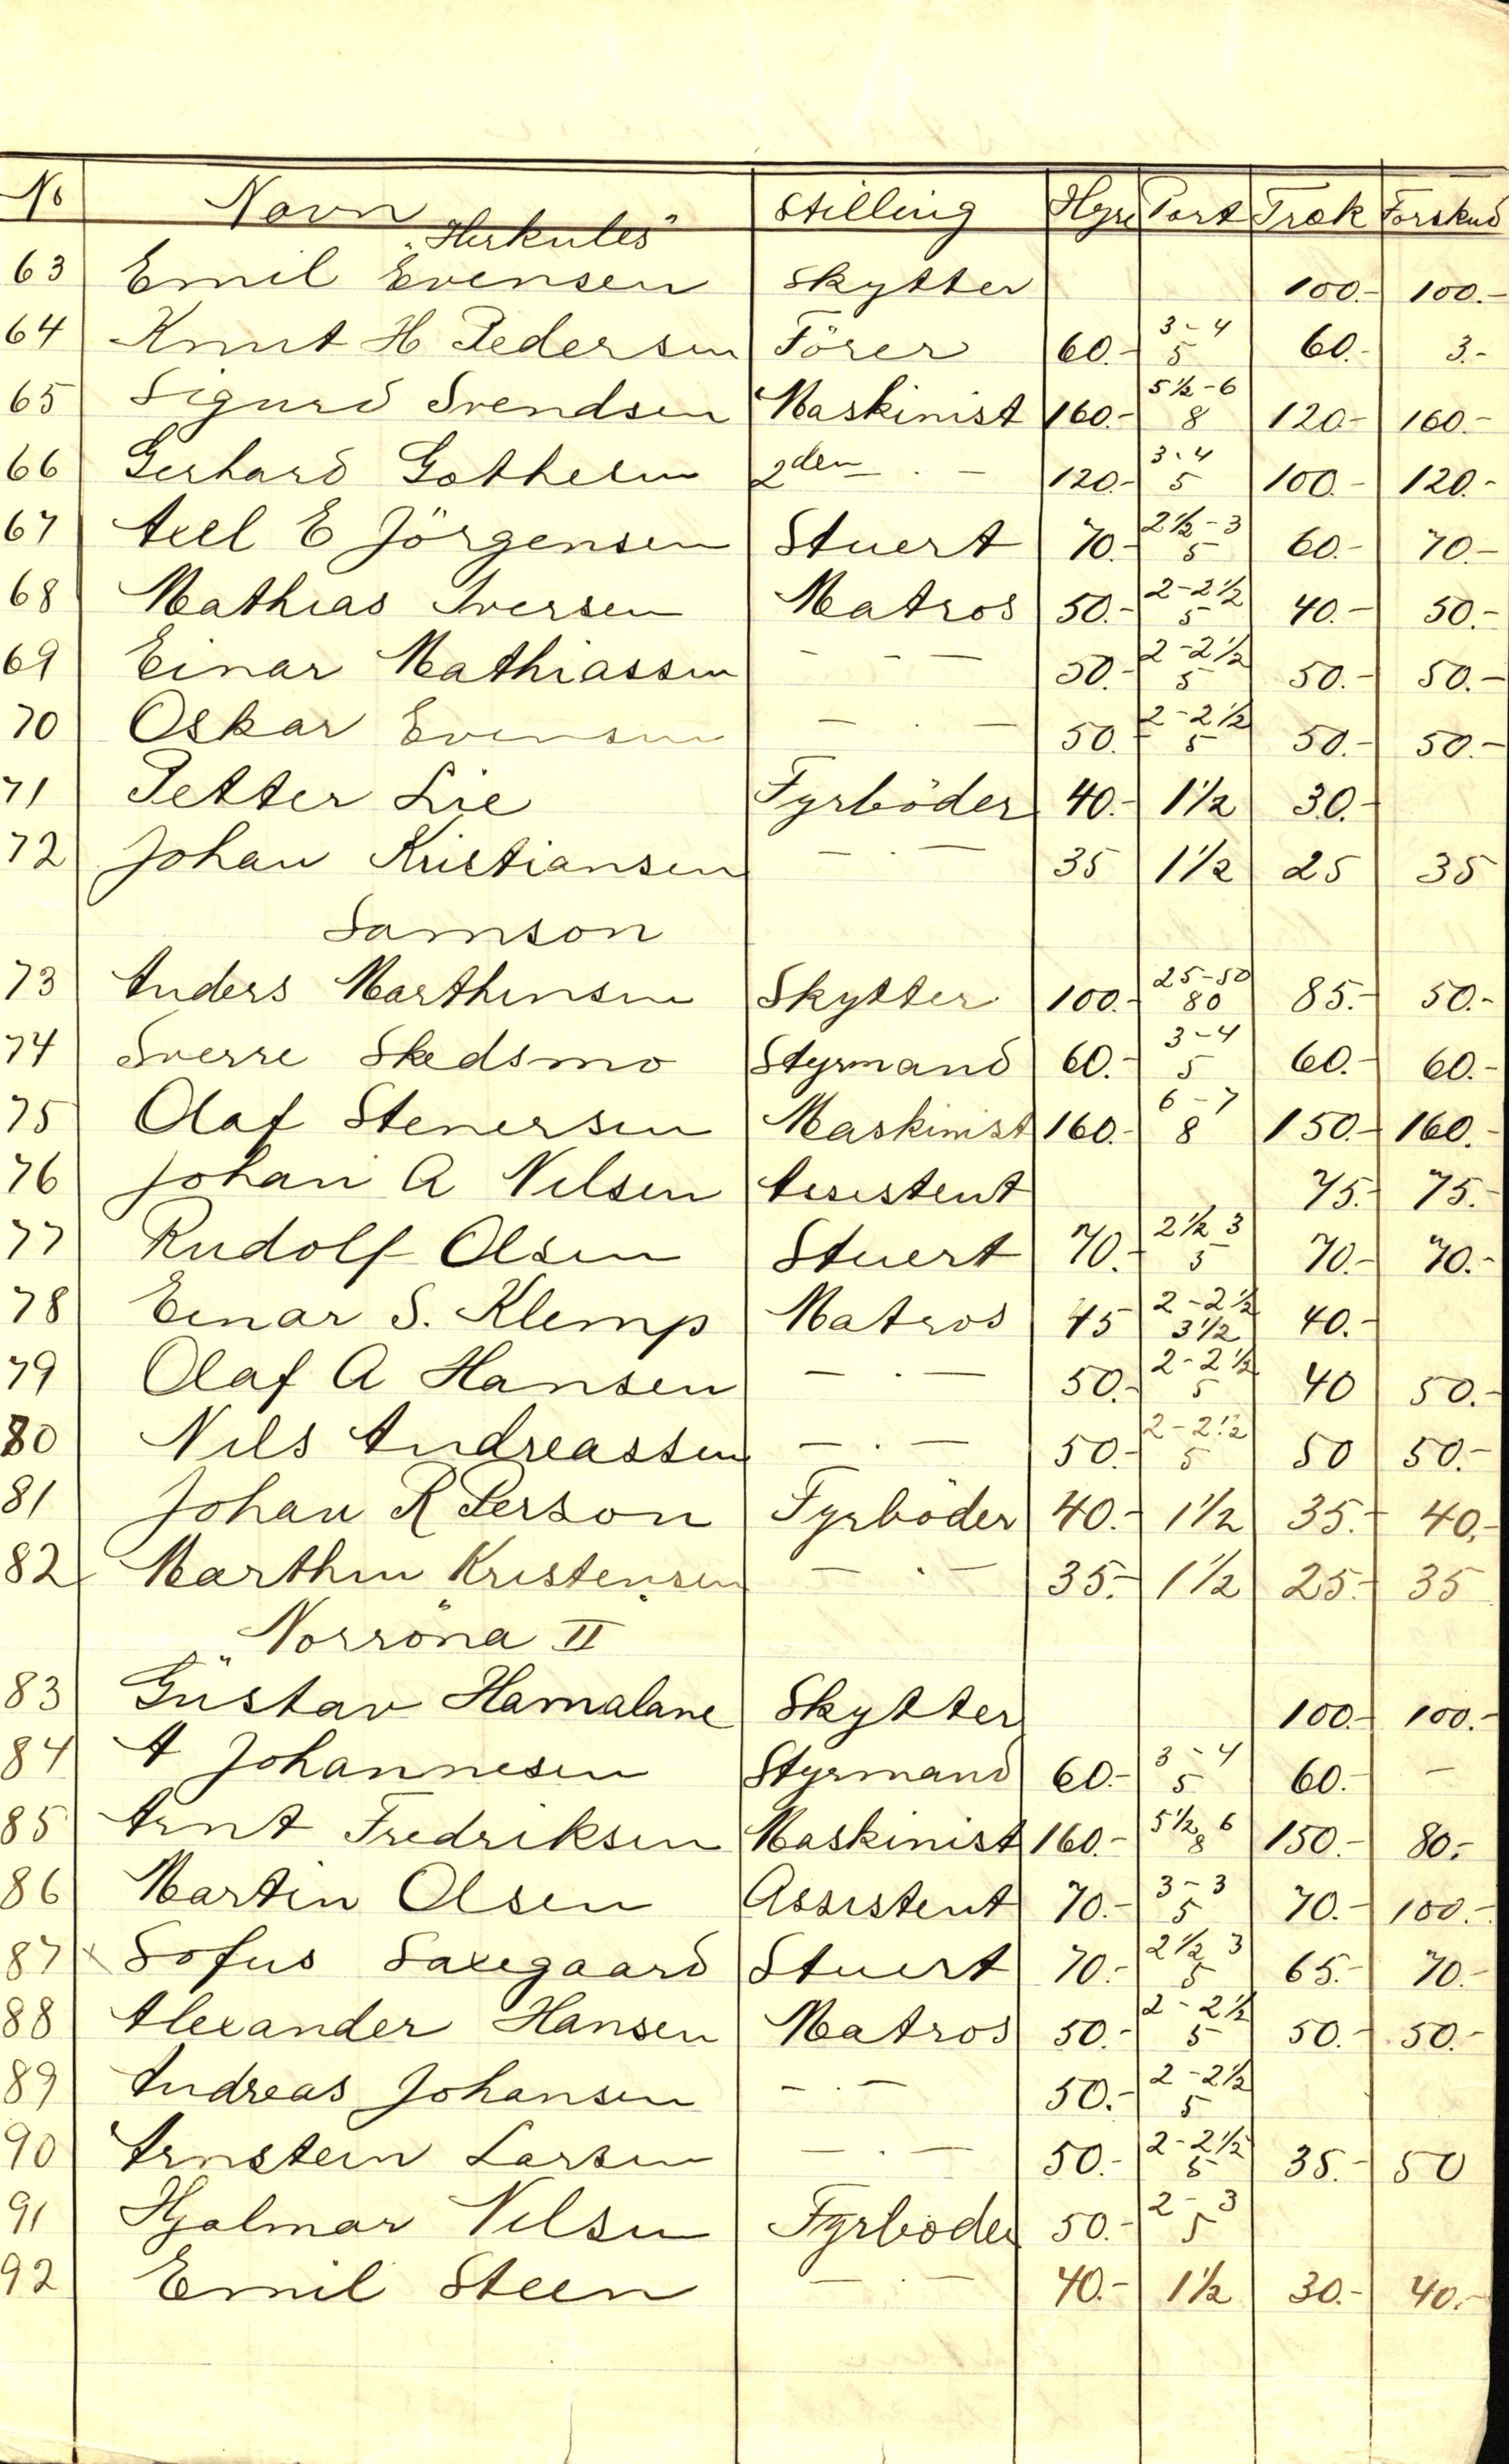 No Navn Stilling Hyre Part Træk Forskud
„Herkules"
63 Emil Evensen Skytter 100.- 100.-
64 Knut H Pedersen Förer 60.- 3-4 5 60.- 3.-
65 Sigurd Svendsen Maskinist 160.- 5½-6 8 120- 160.-
66 Gerhard Gothelm 2den - 120.- 3-4 5 100.- 120.-
67 Axel E Jörgensen Stuert 70.- 2½-3 5 60.- 70.-
68 Mathias Iversen Matros 50.- 2-2½ 5 40.- 50.-
69 Einar Mathiassen - - - 50.- 2-2½ 5 50.- 50.-
70 Oskar Evensen - . - 50.- 2-2½ 5 50.- 50.-
71 Petter Lie Fyrböder 40.- 1½ 30.-
72 Johan Kristiansen - . - 35 1½ 25 35
Samson
73 Anders Marthinsen Skytter 100.- 25-50 80 85.- 50.-
74 Sverre Skedsmo Styrmand 60.- 3-4 5 60.- 60.-
75 Olaf Stenersen Maskinist 160.- 6-7 8 150.- 160.-
76 Johan A Nilsen Assistent 75.- 75.-
77 Rudolf Olsen Stuert 70.- 2½ 3 5 70.- 70.-
78 Einar S. Klemp Matros 45 2-2½ 3½ 40.-
79 Olaf A Hansen - . - 50.- 2-2½ 5 40 50.-
80 Nils Andreassen - . - 50.- 2-2½ 5 50 50.-
81 Johan R Person Fyrböder 40.- 1½ 35.- 40,-
82 Marthin Kristensen - . - 35.- 1½ 25.- 35
„Norröna II"
83 Gustav Hamalane Skytter 100.- 100.-
84 A Johannesen Styrmand 60.- 3-4 5 60.- -
85 Arnt Fredriksen Maskinist 160.- 5½ 6 8 150.- 80.-
86 Martin Olsen Assistent 70.- 3-3 5 70.- 100.-
87 x Sofus Saxegaard Stuert 70.- 2½ 3 5 65.- 70.-
88 Alexander Hansen Matros 50.- 2-2½ 5 50.- 50.-
89 Andreas Johansen - . - 50.- 2-2½ 5
90 Arnstein Larsen - . - 50.- 2-2½ 5 35.- 50
91 Hjalmar Nilsen Fyrböder 50.- 2-3 5
92 Emil Steen - . - 40.- 1½ 30.- 40.-